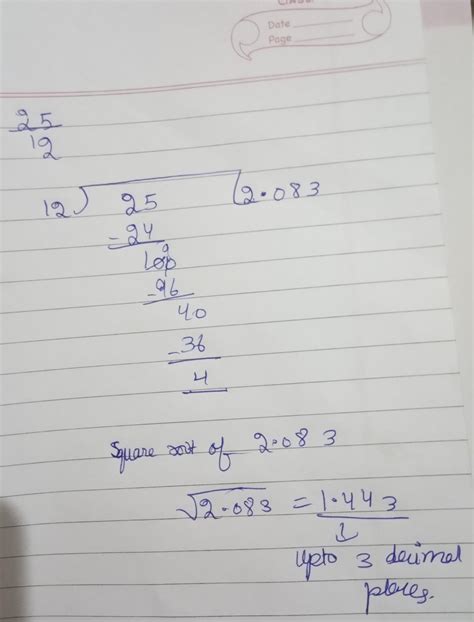 Date
Page
25
12
12) 25 (2.083
- 24
100
- 96
40
- 36
4
Square root of 2.083
√2.083 = 1.443
↓
upto 3 decimal
places.